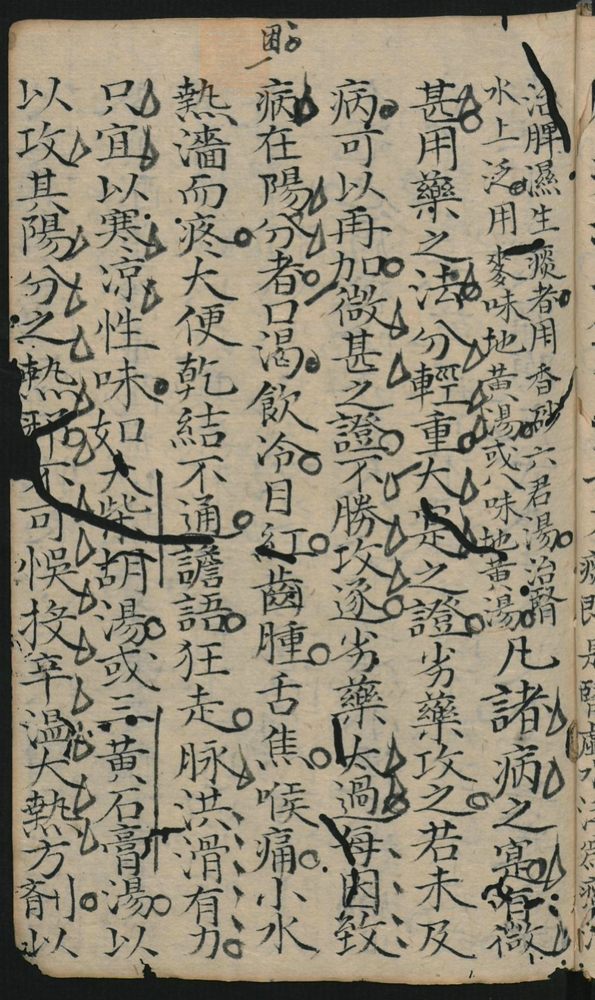 治脾濕生痰者用香砂六君湯治腎
水上泛用麥味地黃湯或八味地黃湯
凡諸病之寔有微
甚用藥之法分輕重大寔之證劣藥攻之若未及
病可以再加微甚之證不勝攻逐劣藥太過每因致
病在陽分者口渴飲冷目紅齒腫舌焦喉痛小水
熱濇而疼大便乾結不通譫語狂走脉洪滑有力
只宜以寒涼性味如大柴胡湯或三黃石膏湯以
以攻其陽分之熱 不可悞投辛温大熱方劑以